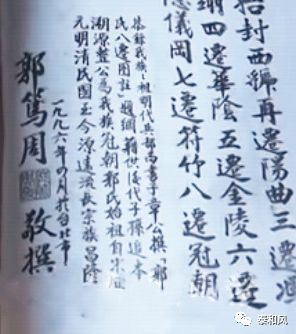 封西虢再遷陽曲三遷馮
翊四遷華陰五遷金陵六遷
儀岡七遷符竹八遷冠朝
恭錄我族祖明代兵部尚書子章公撰「郭
氏八遷圖註」 籍世後代子孫追本
溯源 公為我族冠朝郭氏始祖自宋歷
元明清民國至今源遠流長宗族昌隆
一九九六年四月於台北市
郭篤周 敬撰
泰和风